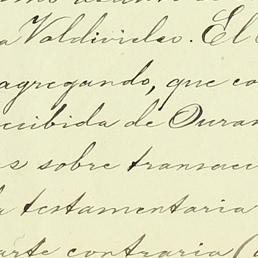 a Valdivielso. El
agregando, que co
recibida de Duran
s sobre transacci
a testamentaria
arte contraria (